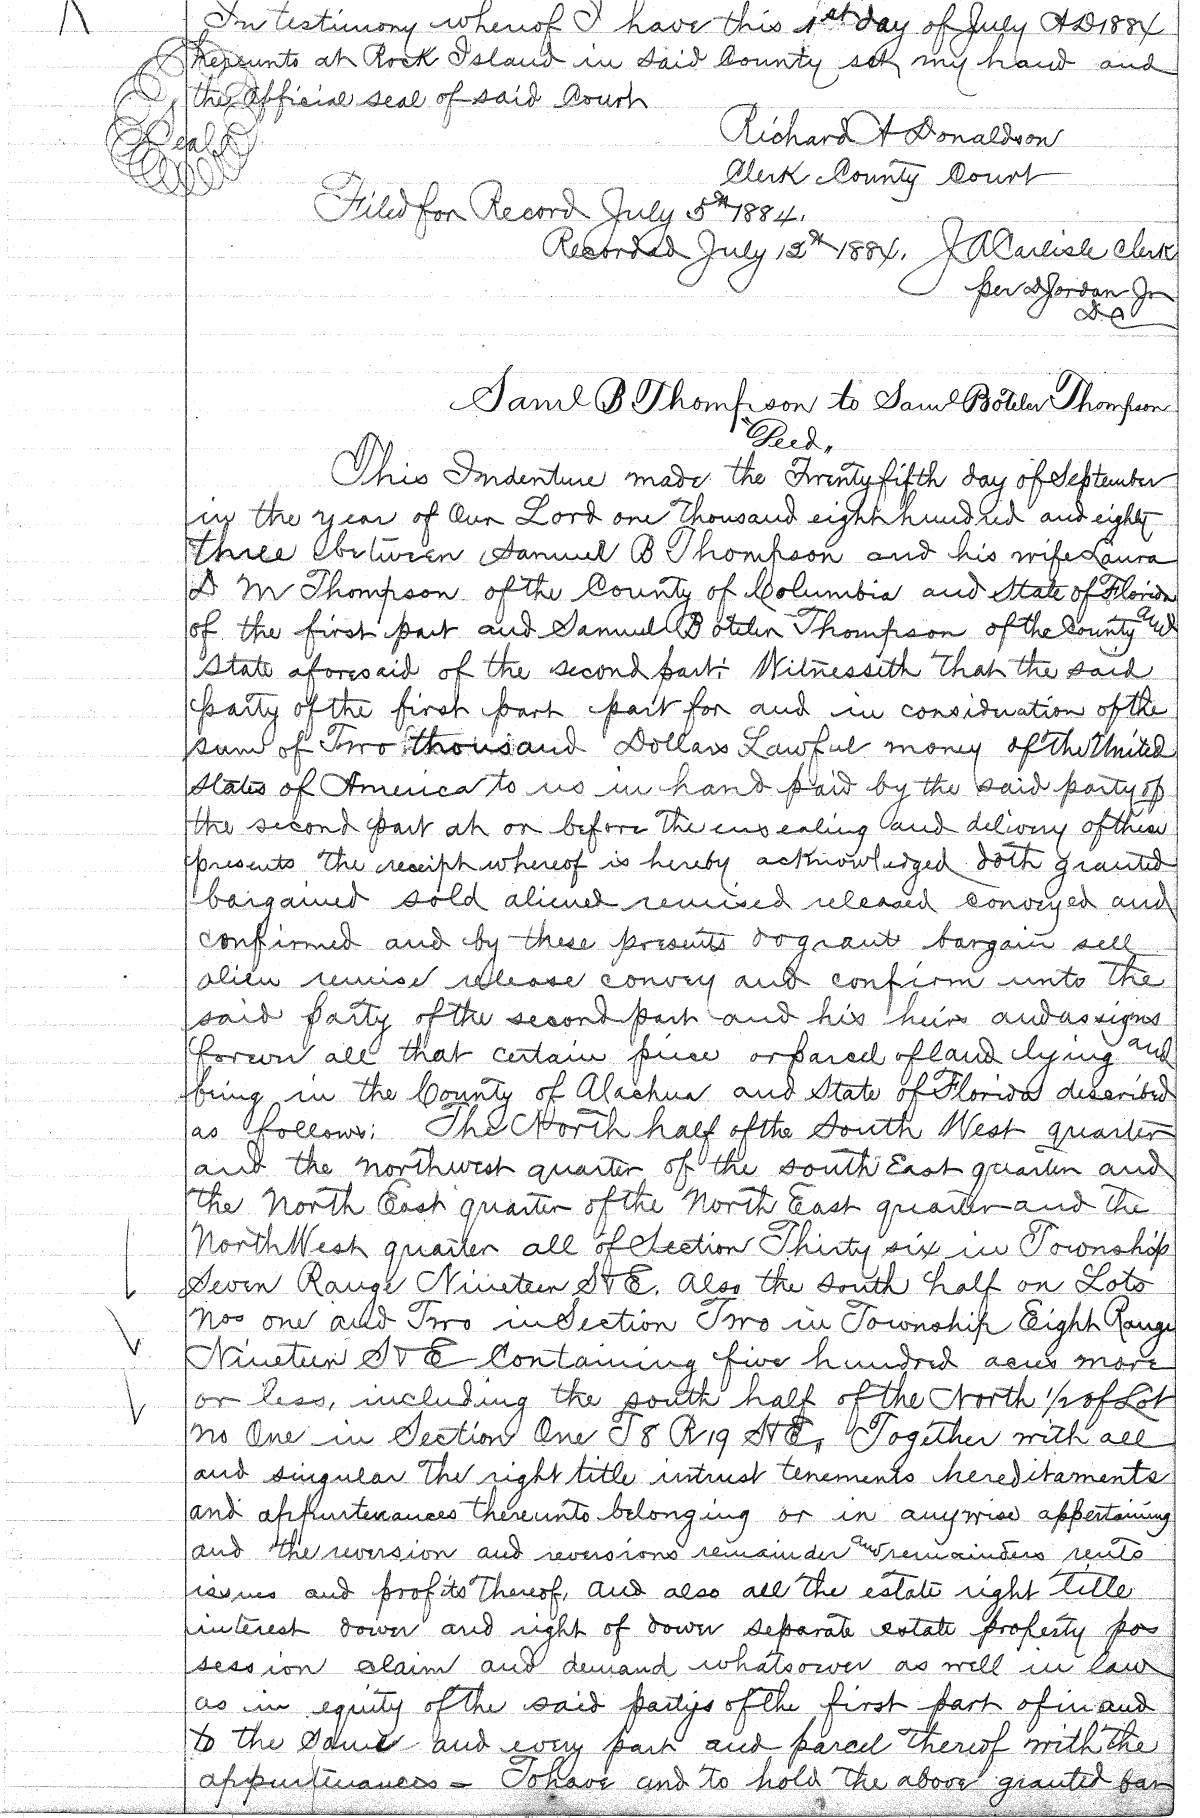 In testimony whereof I have this 1st day of July AD 1884
hereunto at Rock Island in said County set my hand and
the official seal of said Court
Seal
Richard A Donaldson
Clerk County Court
Filed for Record July 5th 1884.
Recorded July 12th 1884. J A Carlisle Clerk
per D Jordan Jr
D.C
Saml B Thompson to Saml Boteler Thompson
"Deed"
This Indenture made the Twenty fifth day of September
in the year of Our Lord one Thousand eight hundred and eighty
three between Samuel B Thompson and his wife Laura
D M Thompson of the County of Columbia and State of Florida
of the first part and Samuel Boteler Thompson of the County and
State aforesaid of the second part: Witnesseth that the said
party of the first part part for and in consideration of the
sum of Two thousand Dollars Lawful money of the United
States of America to us in hand paid by the said party of
the second part at or before the ensealing and delivery of these
presents the receipt whereof is hereby acknowledged doth granted
bargained sold aliened remised released conveyed and
confirmed and by these presents do grant bargain sell
alien remise release convey and confirm unto the
said party of the second part and his heirs and assigns
forever all that certain piece or parcel of land lying and
being in the County of Alachua and State of Florida described
as follows: The North half of the South West quarter
and the northwest quarter of the south East quarter and
the North East quarter of the North East quarter and the
North West quarter all of Section Thirty six in Township
Seven Range Nineteen S & E. Also the south half on Lots
Nos one and Two in Section Two in Township Eight Range
Nineteen S & E Containing five hundred acres more
or less, including the south half of the North 1/2 of Lot
No One in Section One T 8 R 19 S & E, Together with all
and singular the right title intrust tenements hereditaments
and appurtenances thereunto belonging or in anywise appertaining
and the reversion and reversions remainder and remainders rents
issues and profits thereof, and also all the estate right title
interest dower and right of dower separate estate property pos
session claim and demand whatsoever as well in law
as in equity of the said partys of the first part of in and
to the same and every part and parcel thereof with the
appurtenances - To have and to hold the above granted bar